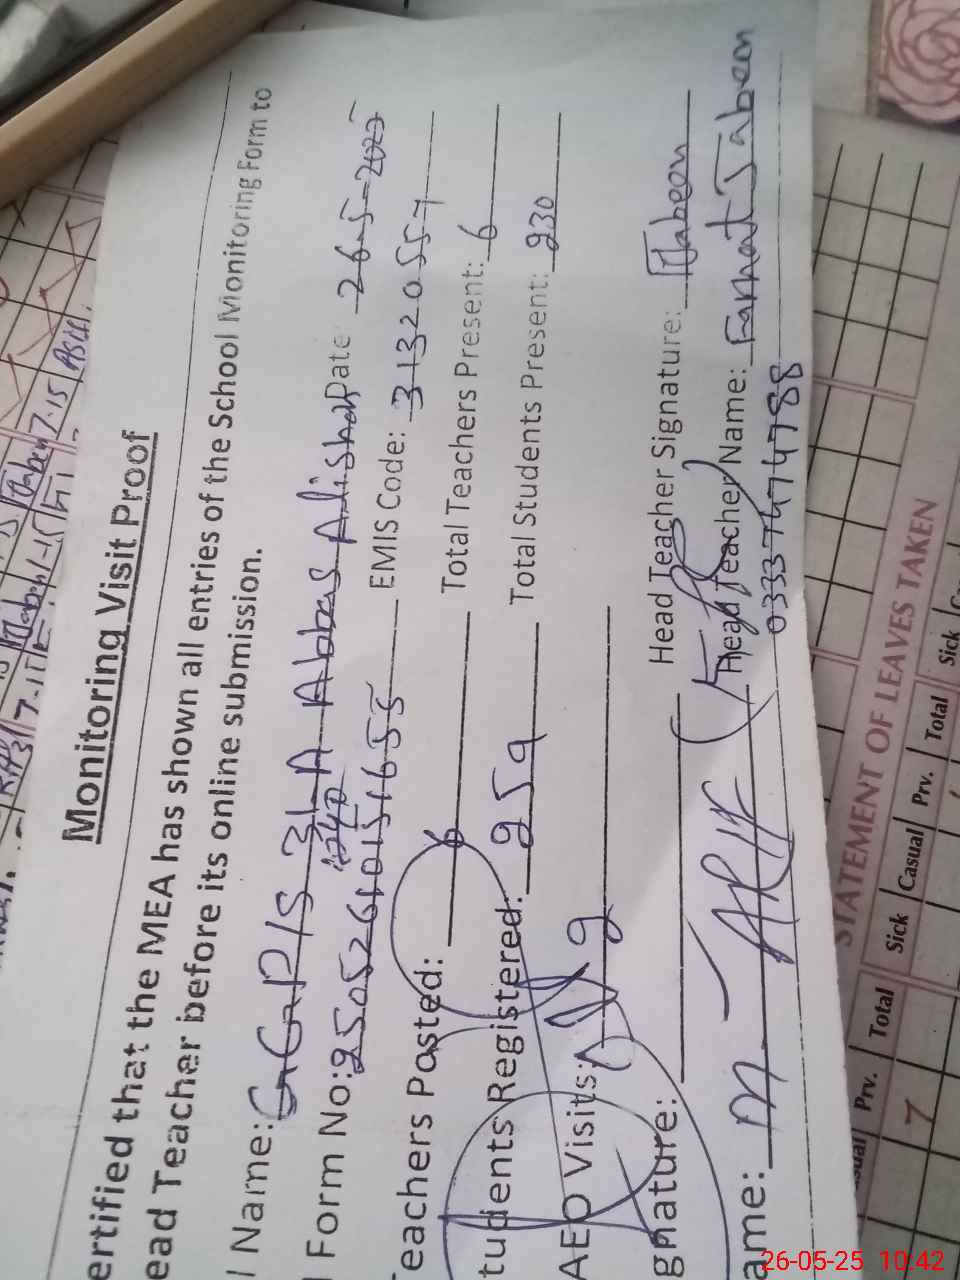 Monitoring Visit Proof
ertified that the MEA has shown all entries of the School Monitoring Form to
ead Teacher before its online submission.
l Name: GGP/S 31-A Abbas Alishah Date 26-5-2025
l Form No: 25052610151655 EMIS Code: 31320557
Teachers Posted: 6 Total Teachers Present: 6
tudents Registered: 259 Total Students Present: 230
AEO Visits:
gnature: Head Teacher Signature: Jabeen
ame: M. Head Teacher Name: Farhat Jabeen
03337474788
STATEMENT OF LEAVES TAKEN
Prv. Total Sick Casual Prv. Total Sick
7
26-05-25 10:42